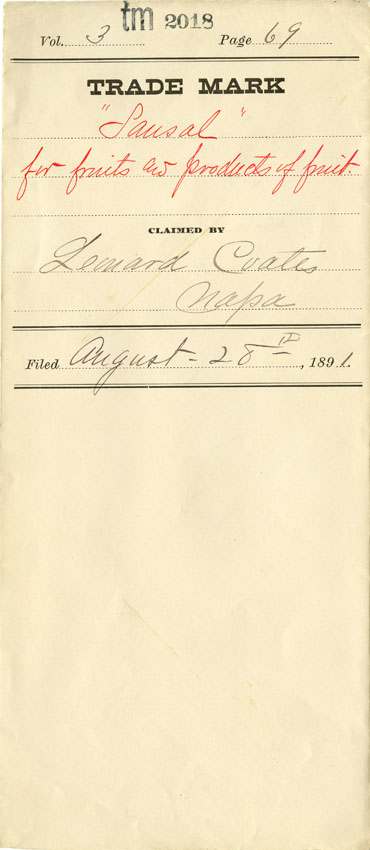 tm 2018
Vol. 3 Page 69
TRADE MARK
"Sausal"
for fruits and products of fruit.
CLAIMED BY
Leonard Coates
Napa
Filed August - 28th, 1891.